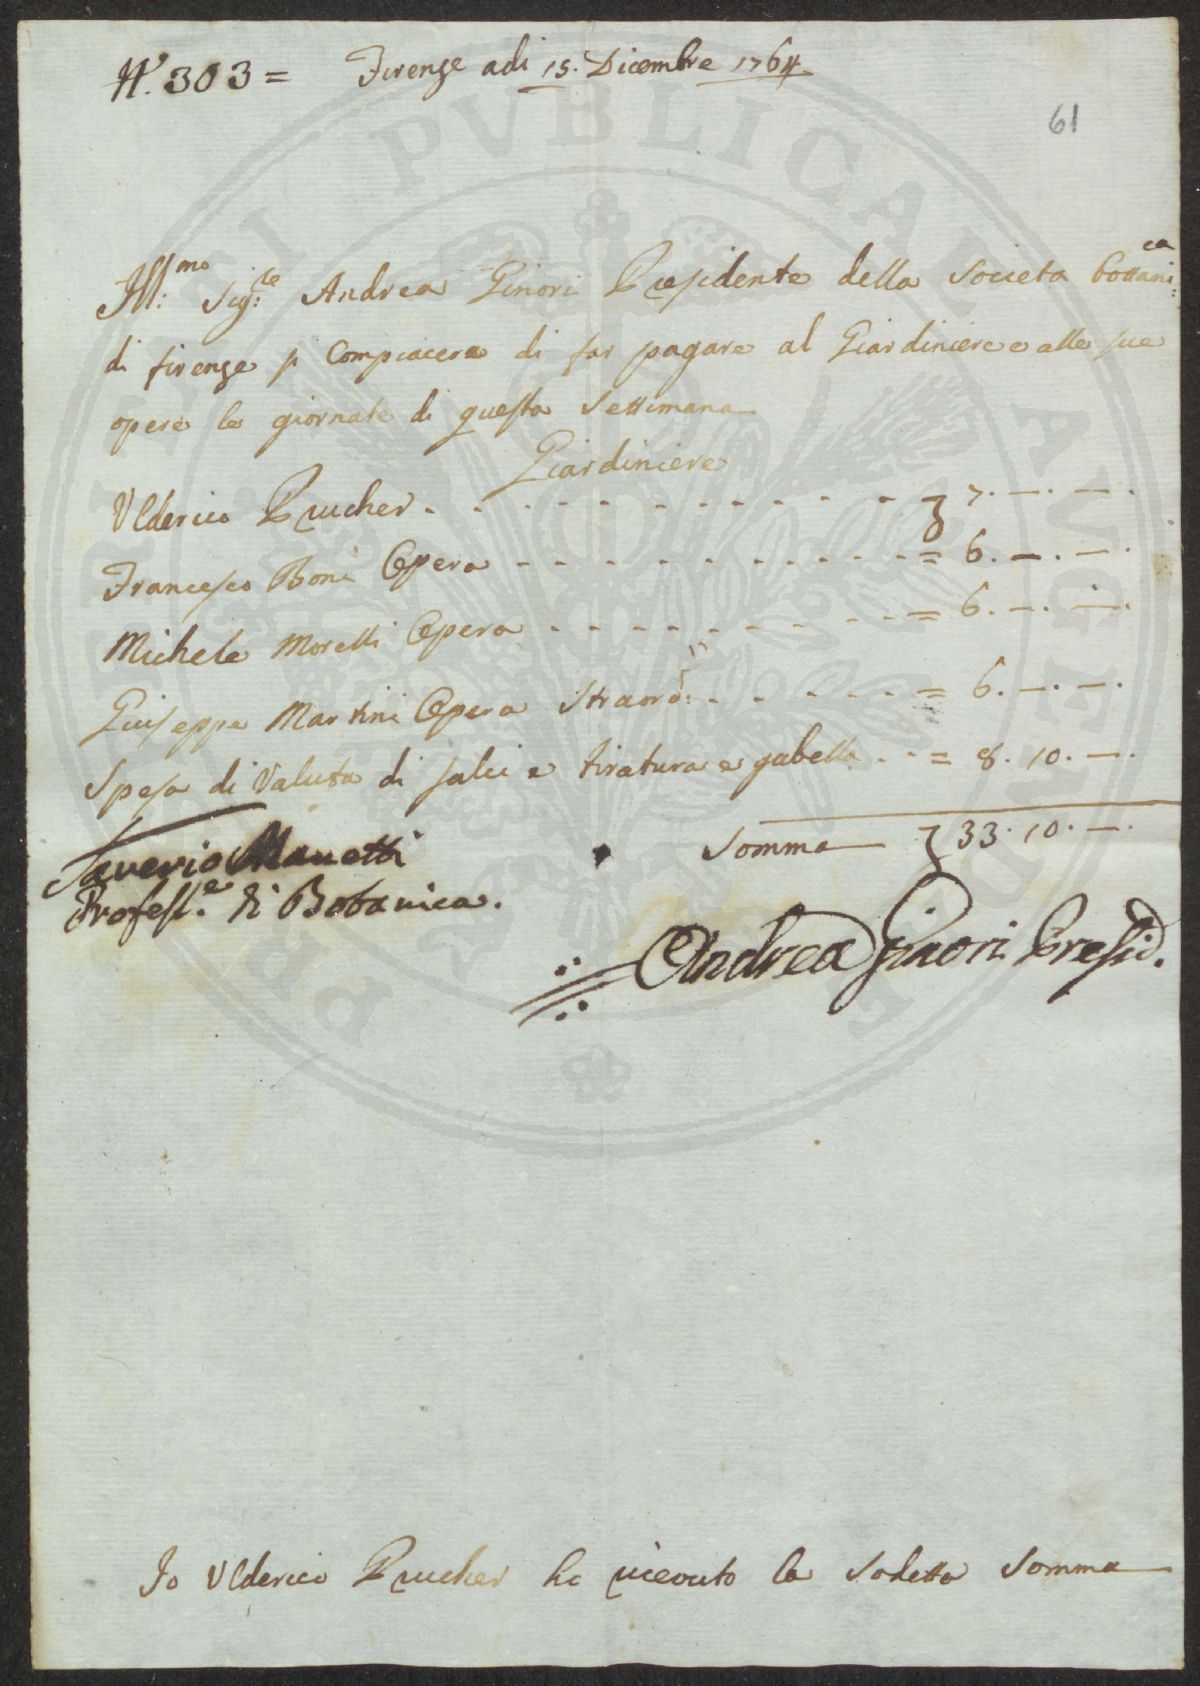 N.° 303 = Firenze adi 15. Dicembre 1764
61
Ill:mo Sig:re Andrea Ginori Presidente della Società Bottani:ca
di firenze si Compiacera di far pagare al Giardiniere e alle sue
opere le giornate di questa Settimana
Giardiniere
Ulderico Prucher - - - - - - - - - - 7. —. —.
Francesco Boni Opera - - - - - - - - - = 6. —. —.
Michele Morelli Opera - - - - - - - - - = 6. —. —.
Giuseppe Martini Opera Straord: - - - - - = 6. —. —.
Spesa di Valuta di salci e tiratura e gabella - - = 8. 10. —.
Somma 33. 10. —.
Saverio Manetti
Profess.e di Botanica.
Andrea Ginori Presid.
Io Ulderico Prucher ho ricevuto la Sodetta Somma
PUBLICAE